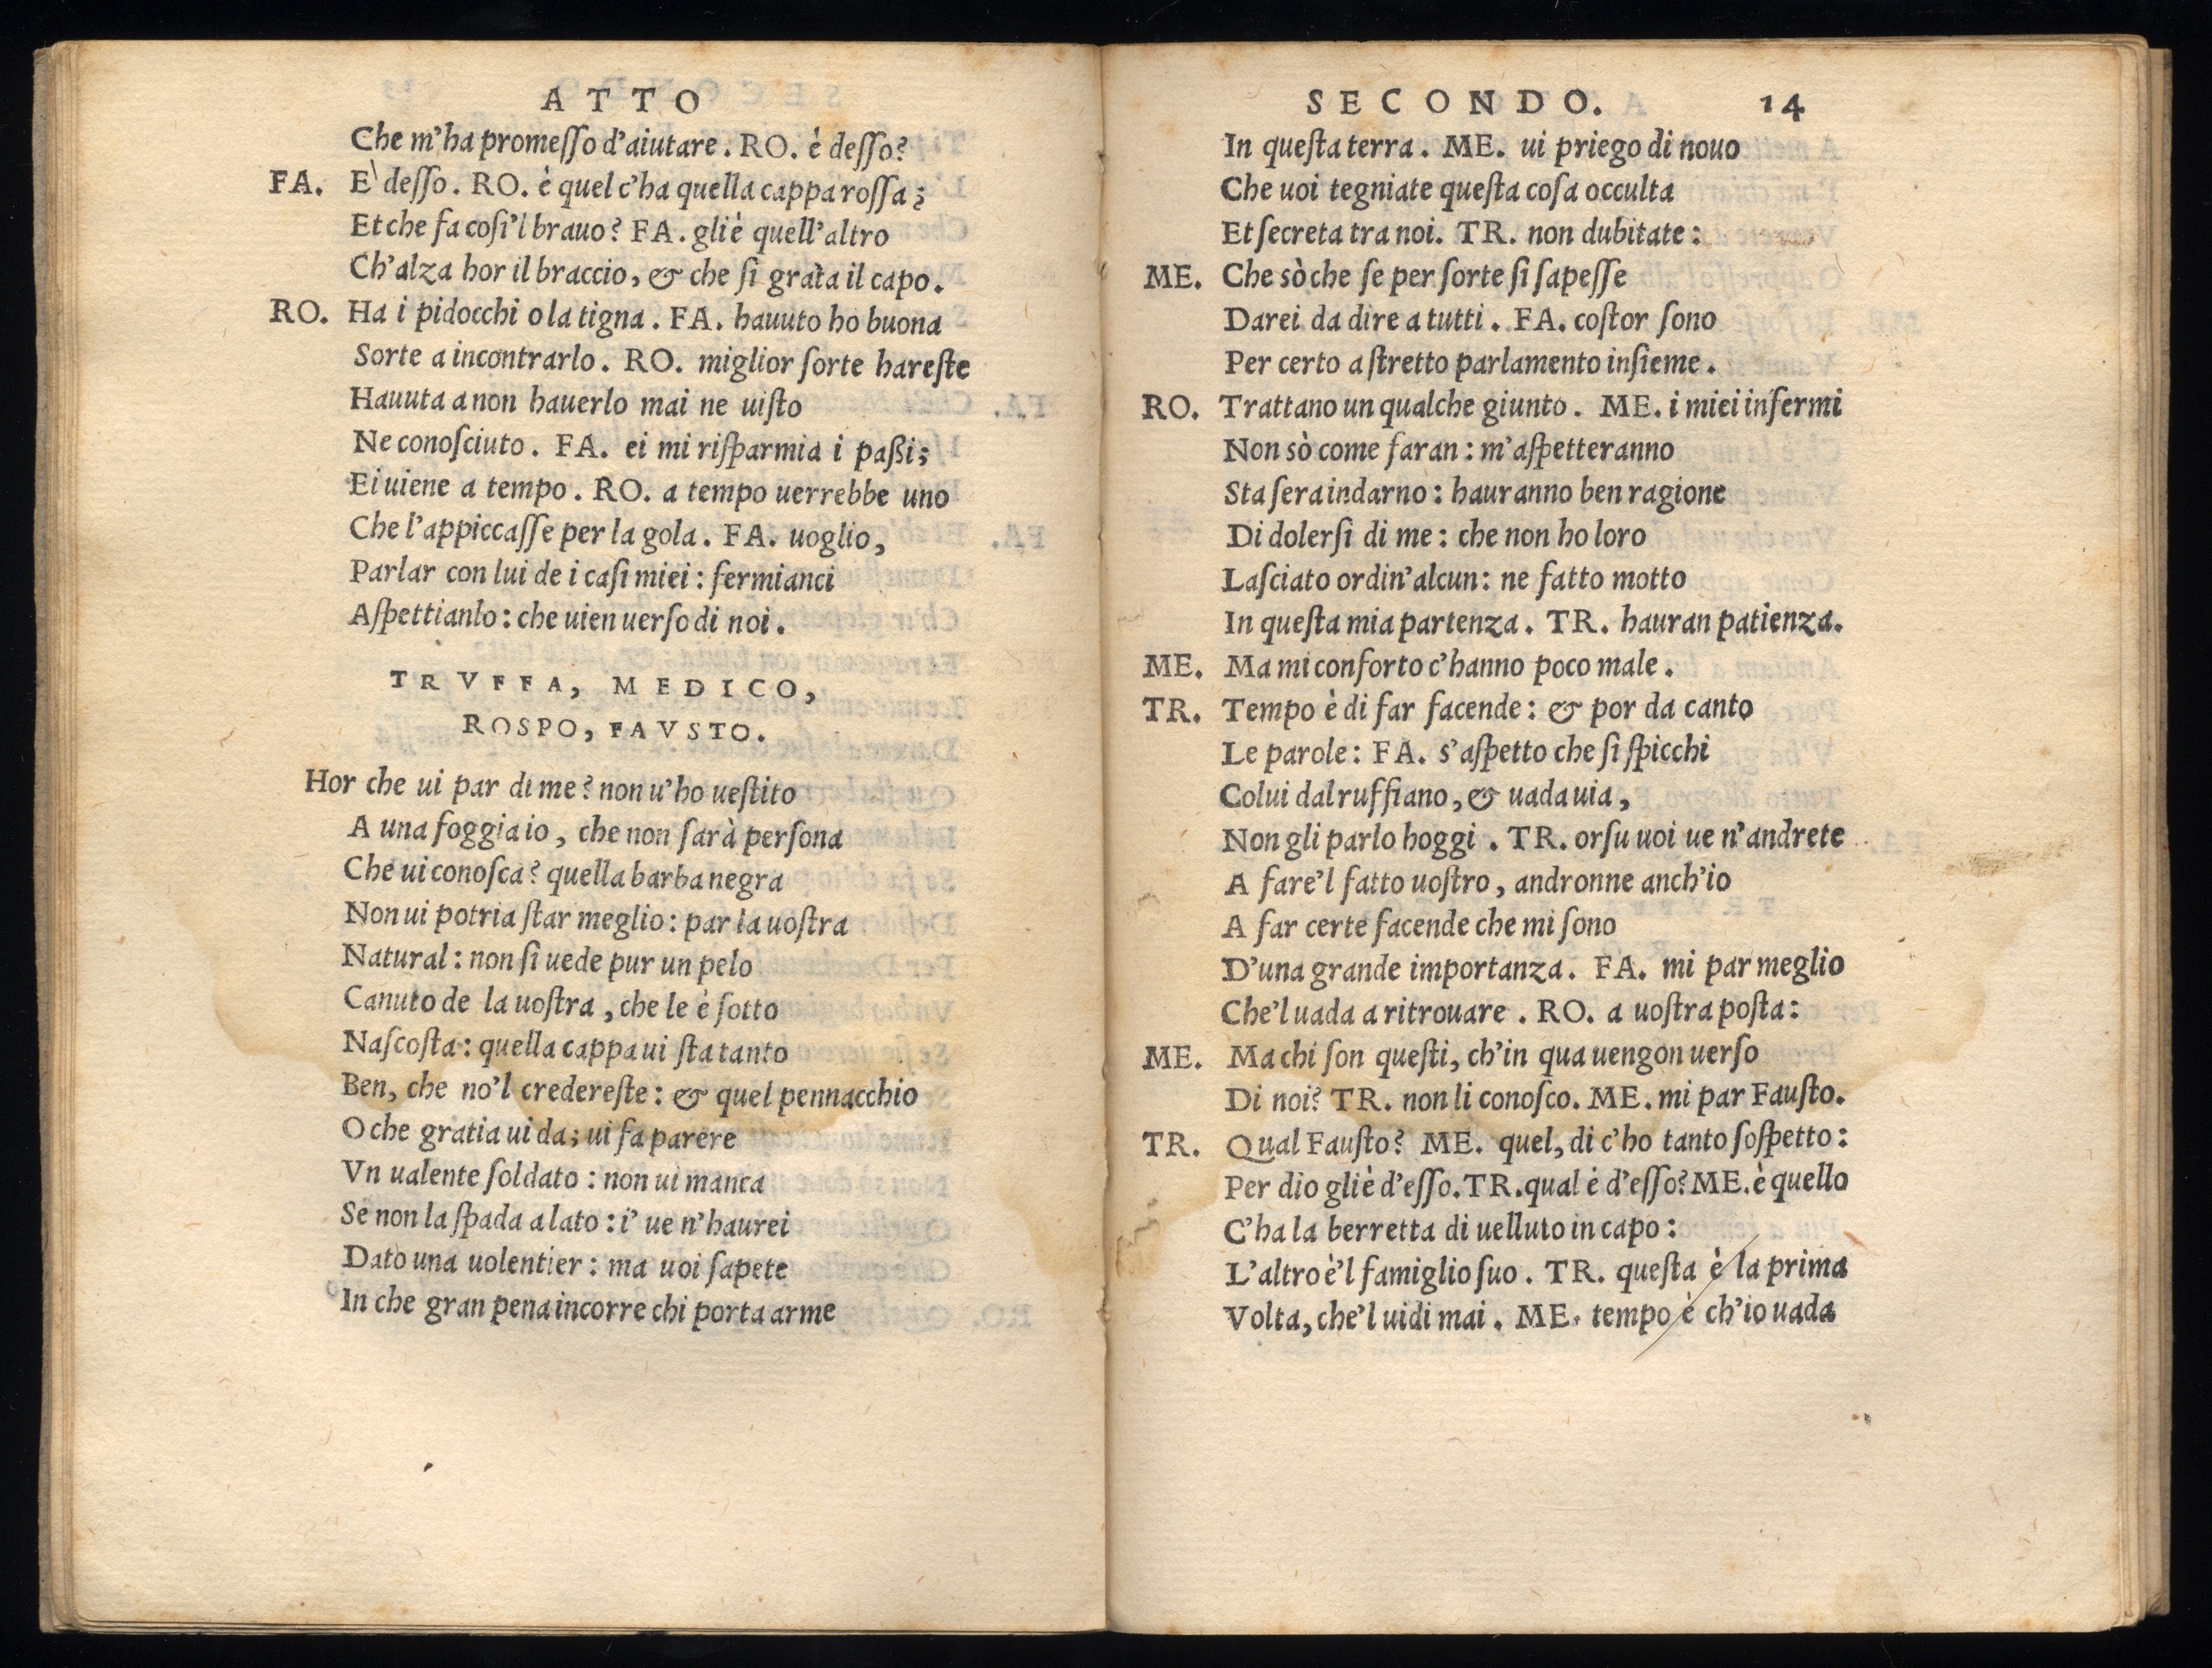 ATTO
Che m'ha promeſſo d'aiutare. RO. è deſſo?
FA. E' deſſo. RO. è quel c'ha quella cappa roſſa;
Et che fa coſi'l brauo? FA. gliè quell'altro
Ch'alza hor il braccio, & che ſi grata il capo.
RO. Ha i pidocchi o la tigna. FA. hauuto ho buona
Sorte a incontrarlo. RO. miglior ſorte hareſte
Hauuta a non hauerlo mai ne uiſto
Ne conoſciuto. FA. ei mi riſparmia i paßi;
Ei uiene a tempo. RO. a tempo uerrebbe uno
Che l'appiccaſſe per la gola. FA. uoglio,
Parlar con lui de i caſi miei: fermianci
Aſpettianlo: che uien uerſo di noi.
TRVFFA, MEDICO,
ROSPO, FAVSTO.
Hor che ui par di me? non u'ho ueſtito
A una foggia io, che non ſarà perſona
Che ui conoſca? quella barba negra
Non ui potria ſtar meglio: par la uoſtra
Natural: non ſi uede pur un pelo
Canuto de la uoſtra, che le è ſotto
Naſcoſta: quella cappa ui ſta tanto
Ben, che no'l credereſte: & quel pennacchio
O che gratia ui da; ui fa parere
Vn ualente ſoldato: non ui manca
Se non la ſpada a lato: i' ue n'haurei
Dato una uolentier: ma uoi ſapete
In che gran pena incorre chi porta arme
SECONDO. 14
In queſta terra. ME. ui priego di nouo
Che uoi tegniate queſta coſa occulta
Et ſecreta tra noi. TR. non dubitate:
ME. Che sò che ſe per ſorte ſi ſapeſſe
Darei da dire a tutti. FA. coſtor ſono
Per certo a ſtretto parlamento inſieme.
RO. Trattano un qualche giunto. ME. i miei infermi
Non sò come faran: m'aſpetteranno
Sta ſera indarno: hauranno ben ragione
Di dolerſi di me: che non ho loro
Laſciato ordin'alcun: ne fatto motto
In queſta mia partenza. TR. hauran patienza.
ME. Ma mi conforto c'hanno poco male.
TR. Tempo è di far facende: & por da canto
Le parole: FA. s'aſpetto che ſi ſpicchi
Colui dal ruffiano, & uada uia,
Non gli parlo hoggi. TR. orſu uoi ue n'andrete
A fare'l fatto uoſtro, andronne anch'io
A far certe facende che mi ſono
D'una grande importanza. FA. mi par meglio
Che'l uada a ritrouare. RO. a uoſtra poſta:
ME. Ma chi ſon queſti, ch'in qua uengon uerſo
Di noi? TR. non li conoſco. ME. mi par Fauſto.
TR. Qual Fauſto? ME. quel, di c'ho tanto ſoſpetto:
Per dio gliè d'eſſo. TR. qual è d'eſſo? ME. è quello
C'ha la berretta di uelluto in capo:
L'altro è'l famiglio ſuo. TR. queſta è la prima
Volta, che'l uidi mai. ME. tempo è ch'io uada